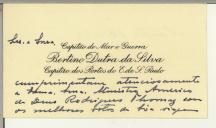 Capitão de Mar e Guerra
Bertino Dutra da Silva
Capitão dos Portos do E. de S. Paulo
cumprimentam atenciosamente
a Exma. Sra. Ministro Américo
de Deus Rodrigues Thomaz com
os melhores votos de boa viagem